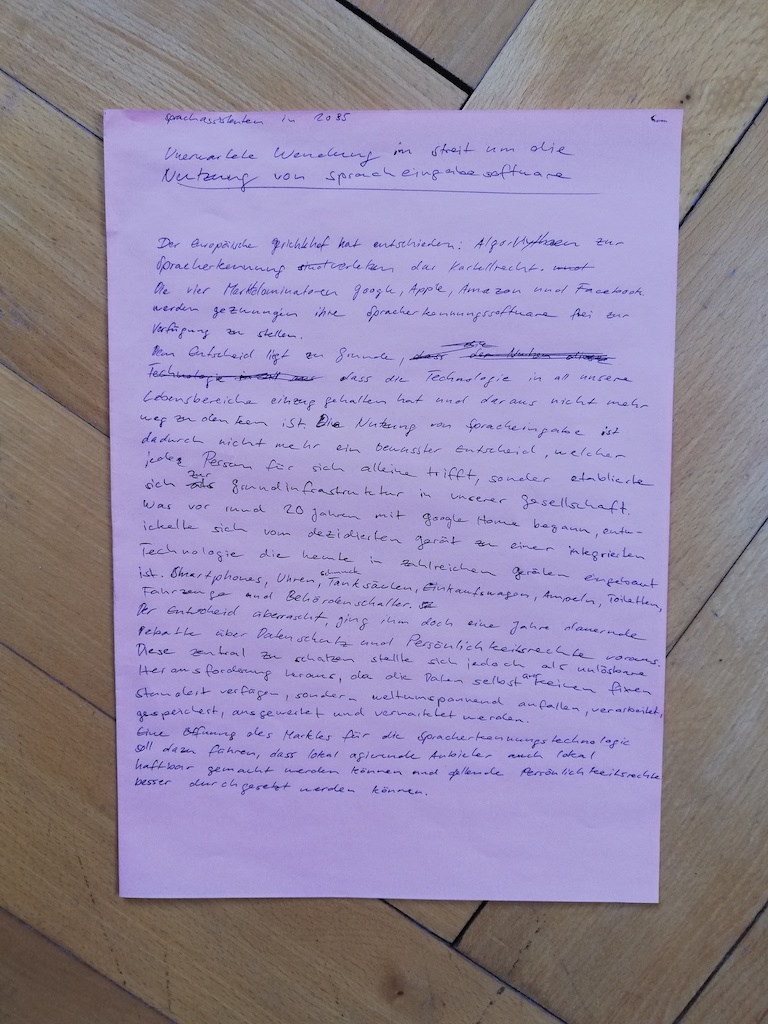 Sprachassistenten in 2035
Unerwartete Wendung im streit um die
Nutzung von spracheingabesoftware
Der Europäische Gerichtshof hat entschieden: Algorithmen zur
Spracherkennung verletzen das Kartellrecht.
Die vier Marktdominatoren Google, Apple, Amazon und Facebook
werden gezwungen ihre Spracherkennungssoftware frei zur
Verfügung zu stellen.
Dem Entscheid liegt zu Grunde, dass die der Nutzen dieser
Technologie in all uns dass die Technologie in all unsere
Lebensbereiche einzug gehalten hat und daraus nicht mehr
weg zu denken ist. Die Nutzung von Spracheingabe ist
dadurch nicht mehr ein bewusster Entscheid, welcher
jede Person für sich alleine trifft, sonder etablierte
sich zur Grundinfrastruktur in unserer Gesellschaft.
Was vor rund 20 Jahren mit Google Home begann, entw-
ickelte sich vom dezidierten gerät zu einer integrierten
Technologie die heute in zahlreichen geräten eingebaut
ist. Smartphones, Uhren, schmuck Tanksäulen, Einkaufswagen, Ampeln, Toiletten,
Fahrzeuge und Behördenschalter.
Der Entscheid überrascht, ging ihm doch eine Jahre dauernde
Debatte über Datenschutz und Persönlichkeitsrechte voraus.
Diese zentral zu schützen stellte sich jedoch als unlösbare
Herausforderung heraus, da die Daten selbst auf keinen fixen
standort verfügen, sondern weltumspannend anfallen, verarbeitet,
gespeichert, ausgewertet und vermarktet werden.
Eine Öffnung des Marktes für die Spracherkennungstechnologie
soll dazu führen, dass lokal agierende Anbieter auch lokal
haftbar gemacht werden können und geltende Persönlichkeitsrechte
besser durchgesetzt werden können.